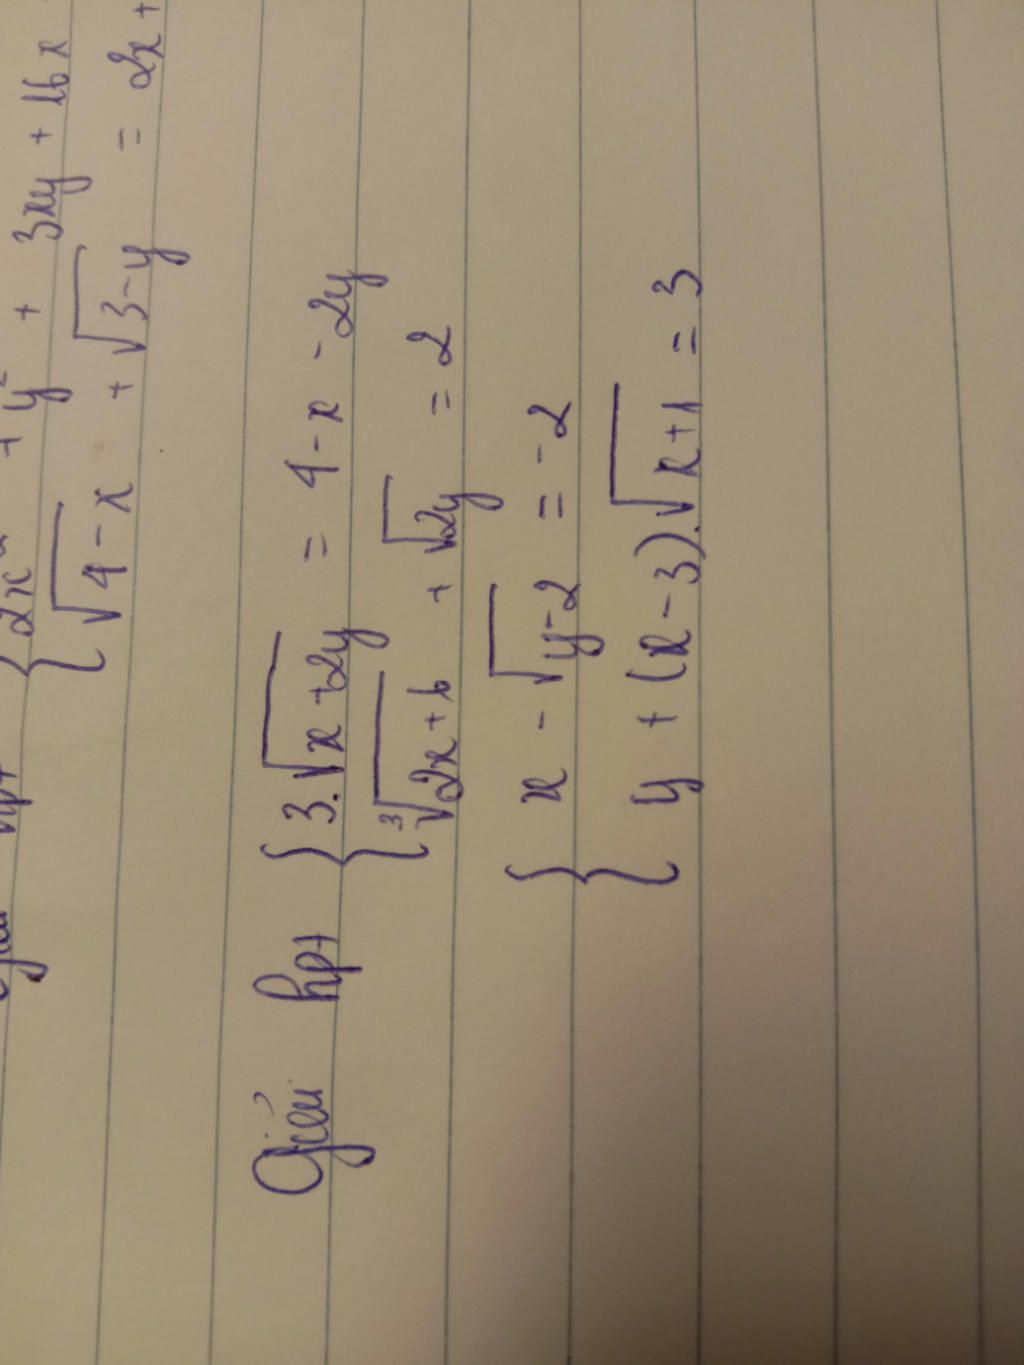 { 2x² + y² + 3xy + 16x
√(4-x) + √(3-y) = 2x +
Giải hpt { 3.√(x+2y) = 4-x-2y
∛(2x+6) + √(2y) = 2
{ x - √(y-2) = -2
y + (x-3).√(x+1) = 3